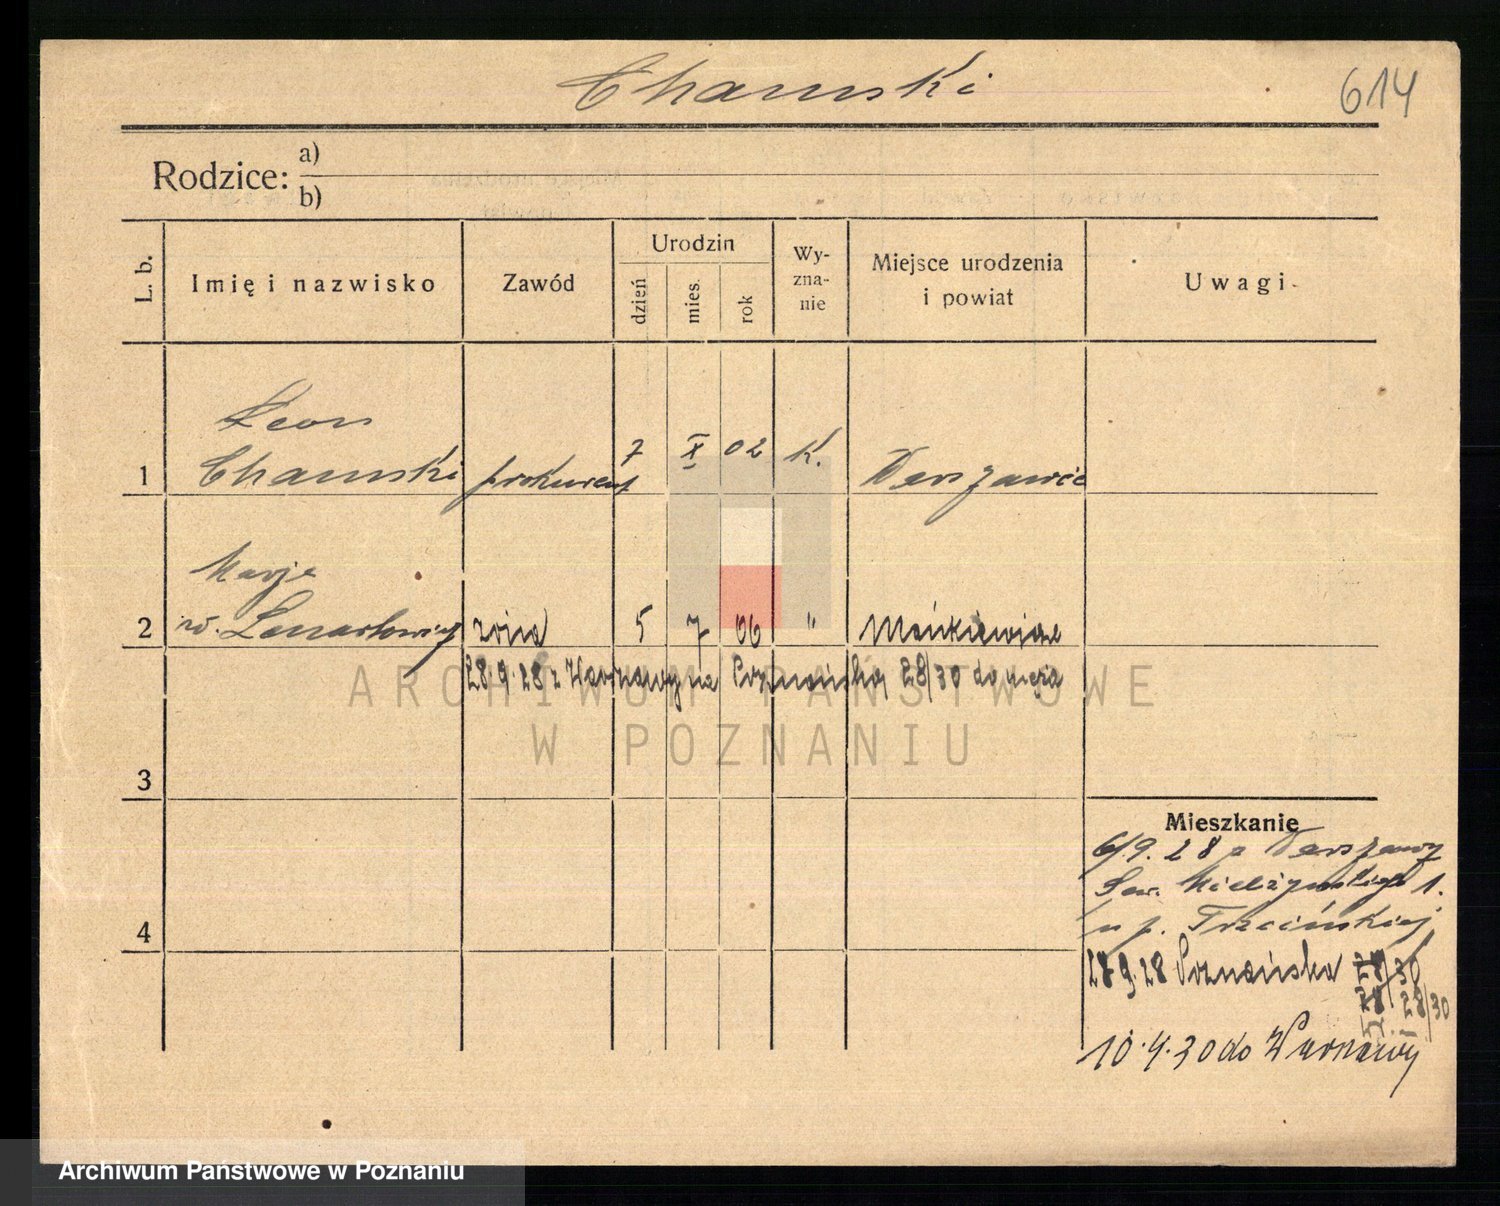 Chamski
614
Rodzice: a)
b)
L. b.
Imię i nazwisko
Zawód
Urodzin
dzień
mies.
rok
Wy-
zna-
nie
Miejsce urodzenia
i powiat
Uwagi
Leon
1 Chamski prokurent 7 X 02 K. Warszawie
Marja
2 w. Lenartowicz żona 5 7 06 "
28.9.28 z Warszawy na Poznańską 28/30 do męża
3
4
Mieszkanie
6/9. 28 z Warszawy
Sew. Mielżyńskiego 1.
u p. Trzcińskiej
27.9.28 Poznańska 28/30
28/30
10.4.30 do Warszawy
ARCHIWUM PAŃSTWOWE
W POZNANIU
Archiwum Państwowe w Poznaniu